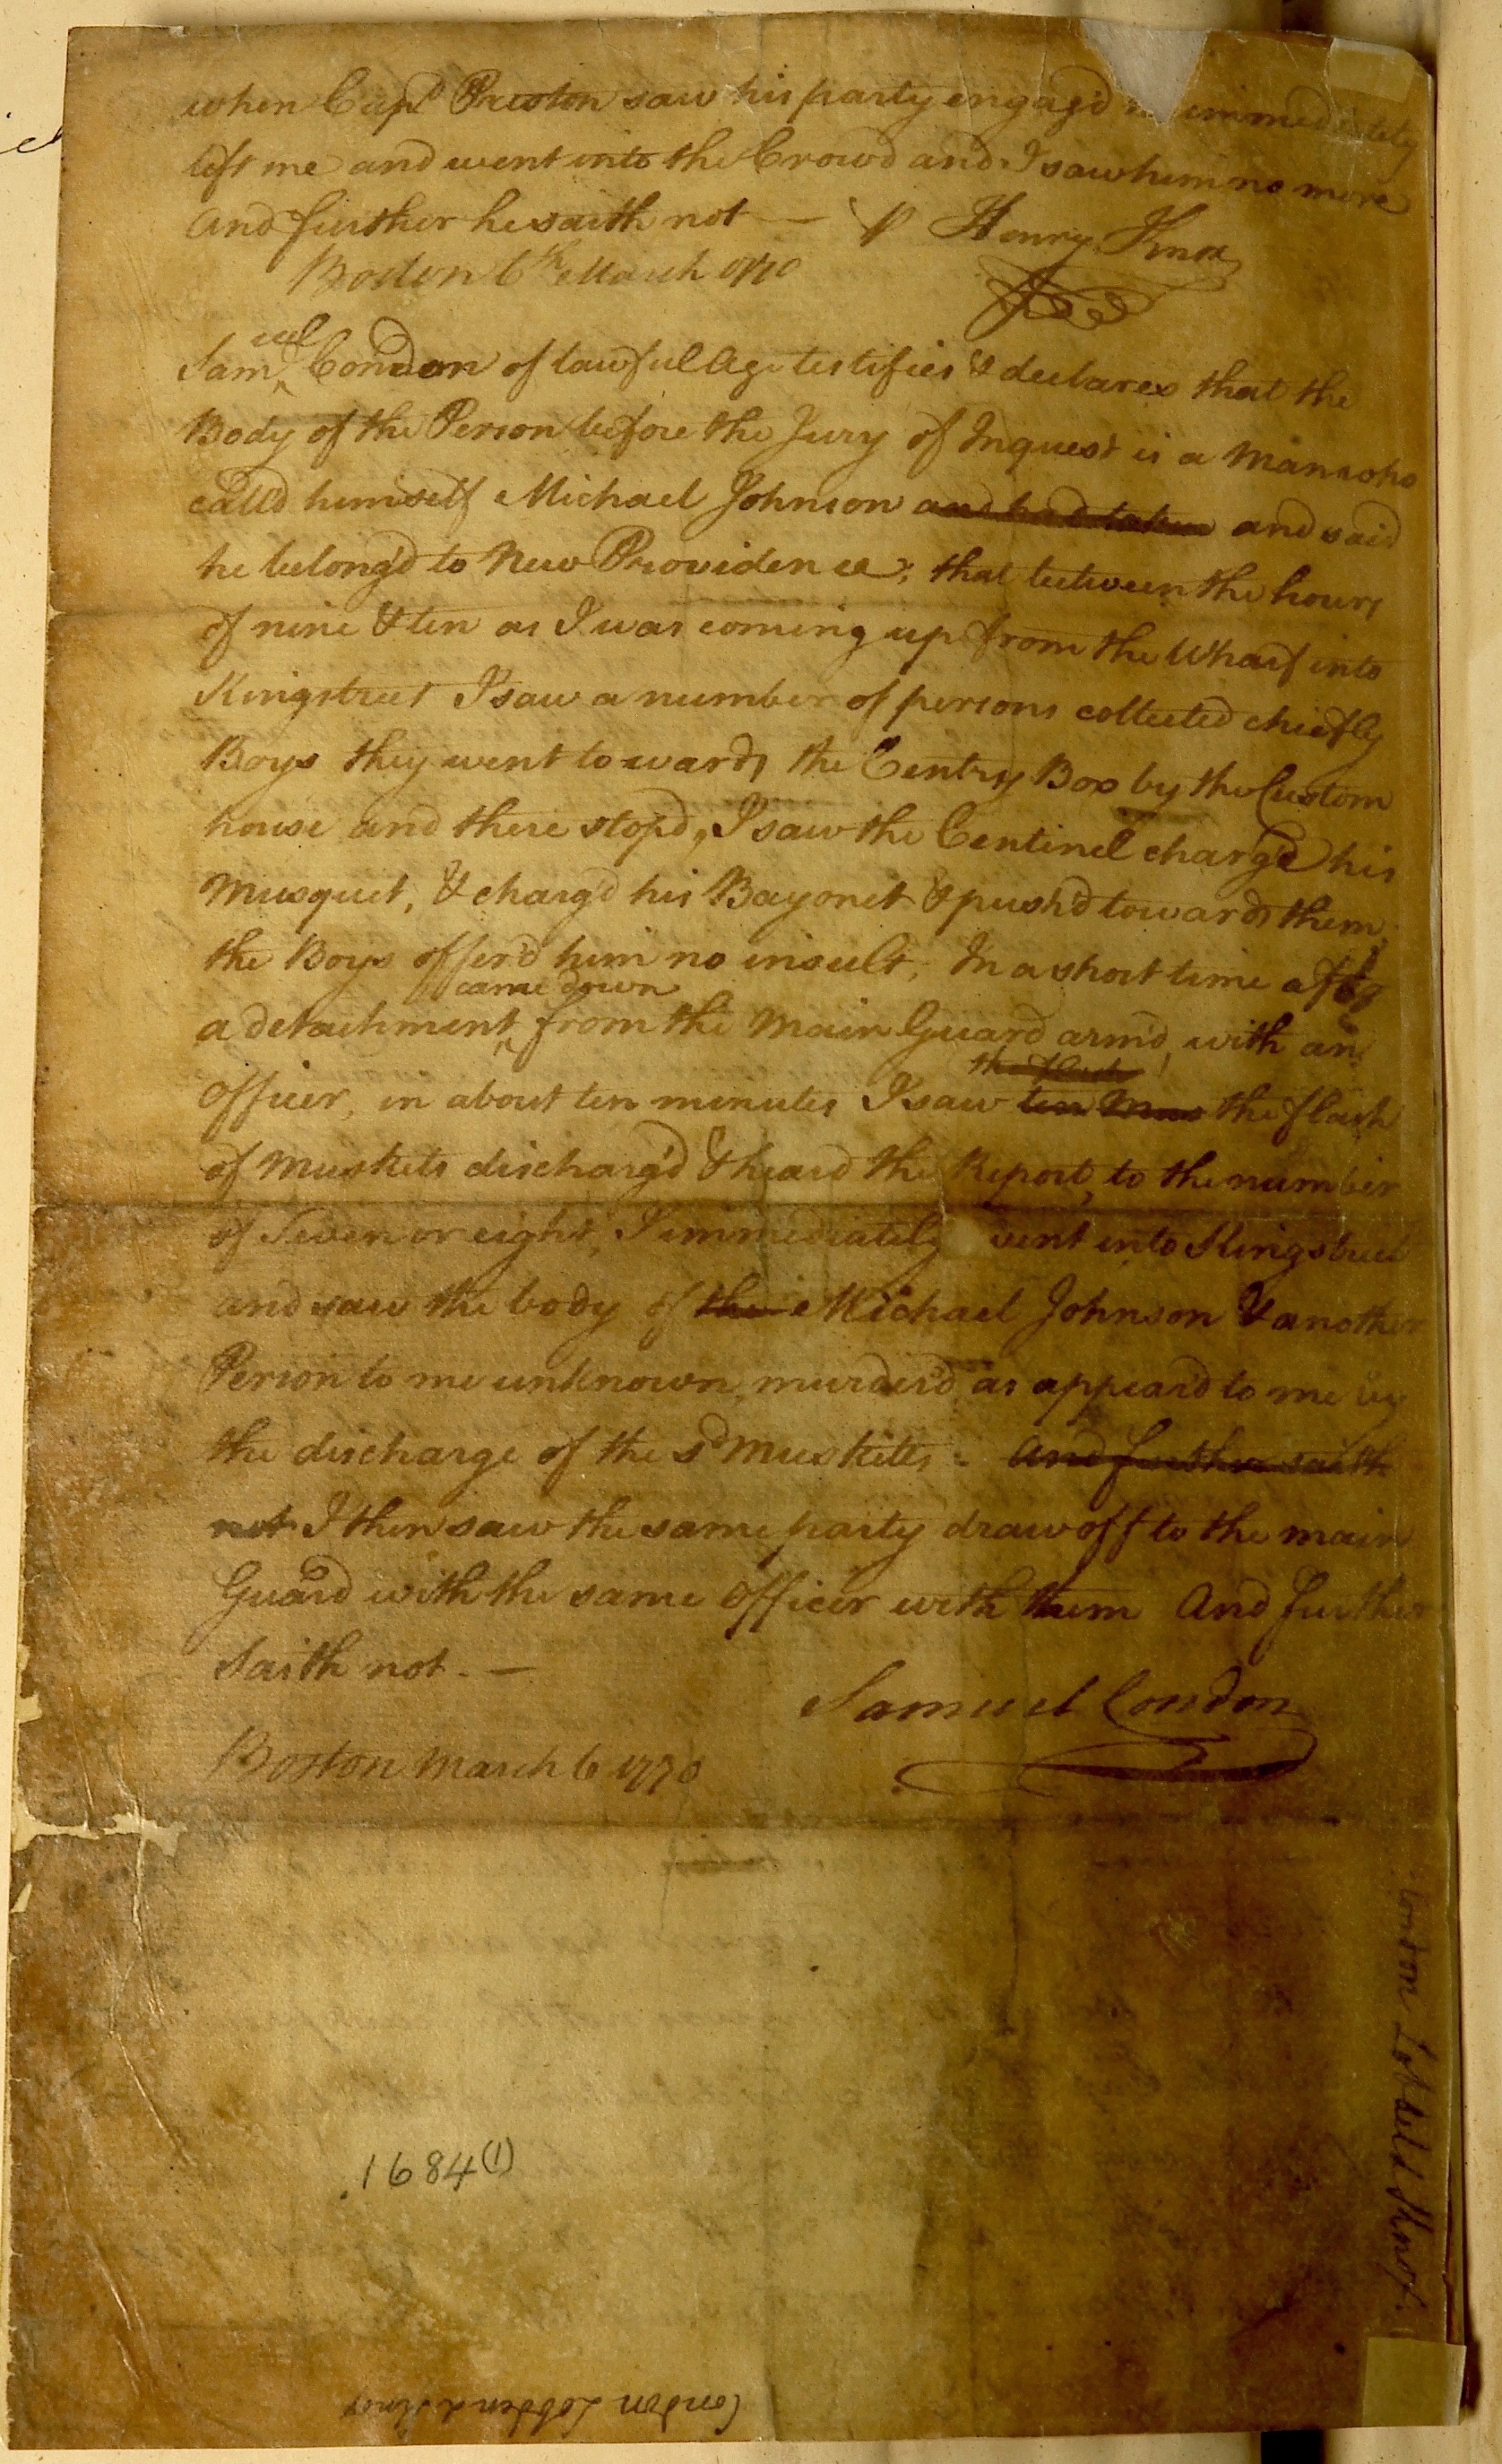 when Cap.t Preston saw his party engag'd immediately
left me and went into the Crowd and I saw him no more
And further he saith not — Henry Knox
Boston 6th March 1770
uel
Sam^ Condon of lawful Age testifies & declares that the
Body of the Person before the Jury of Inquest is a Man who
call'd himself Michael Johnson and had taken and said
he belong'd to New Providence; that between the hours
of nine & ten as I was coming up from the Wharf into
Kingstreet I saw a number of persons collected chiefly
Boys they went towards the Centry Box by the Custom
house and there stop'd, I saw the Centinel charg'd his
Musquet, & charg'd his Bayonet & push'd towards them,
the Boys offer'd him no insult; In a short time after
came down
a detachment^ from the Main Guard arm'd, with an
the flash
Officer, in about ten minutes I saw ten Mus the flash
of Muskets discharg'd & heard the Report, to the number
of Seven or eight, I immediately went into Kingstreet
and saw the body of the Michael Johnson & another
Person to me unknown, murder'd, as appear'd to me by
the discharge of the s.d Musketts: And further saith
not I then saw the same party draw off to the main
Guard with the same Officer with them And further
Saith not. —
Samuel Condon
Boston March 6 1770
Condon Lobdel & Knox
.1684(1)
Condon Lobden & Knox